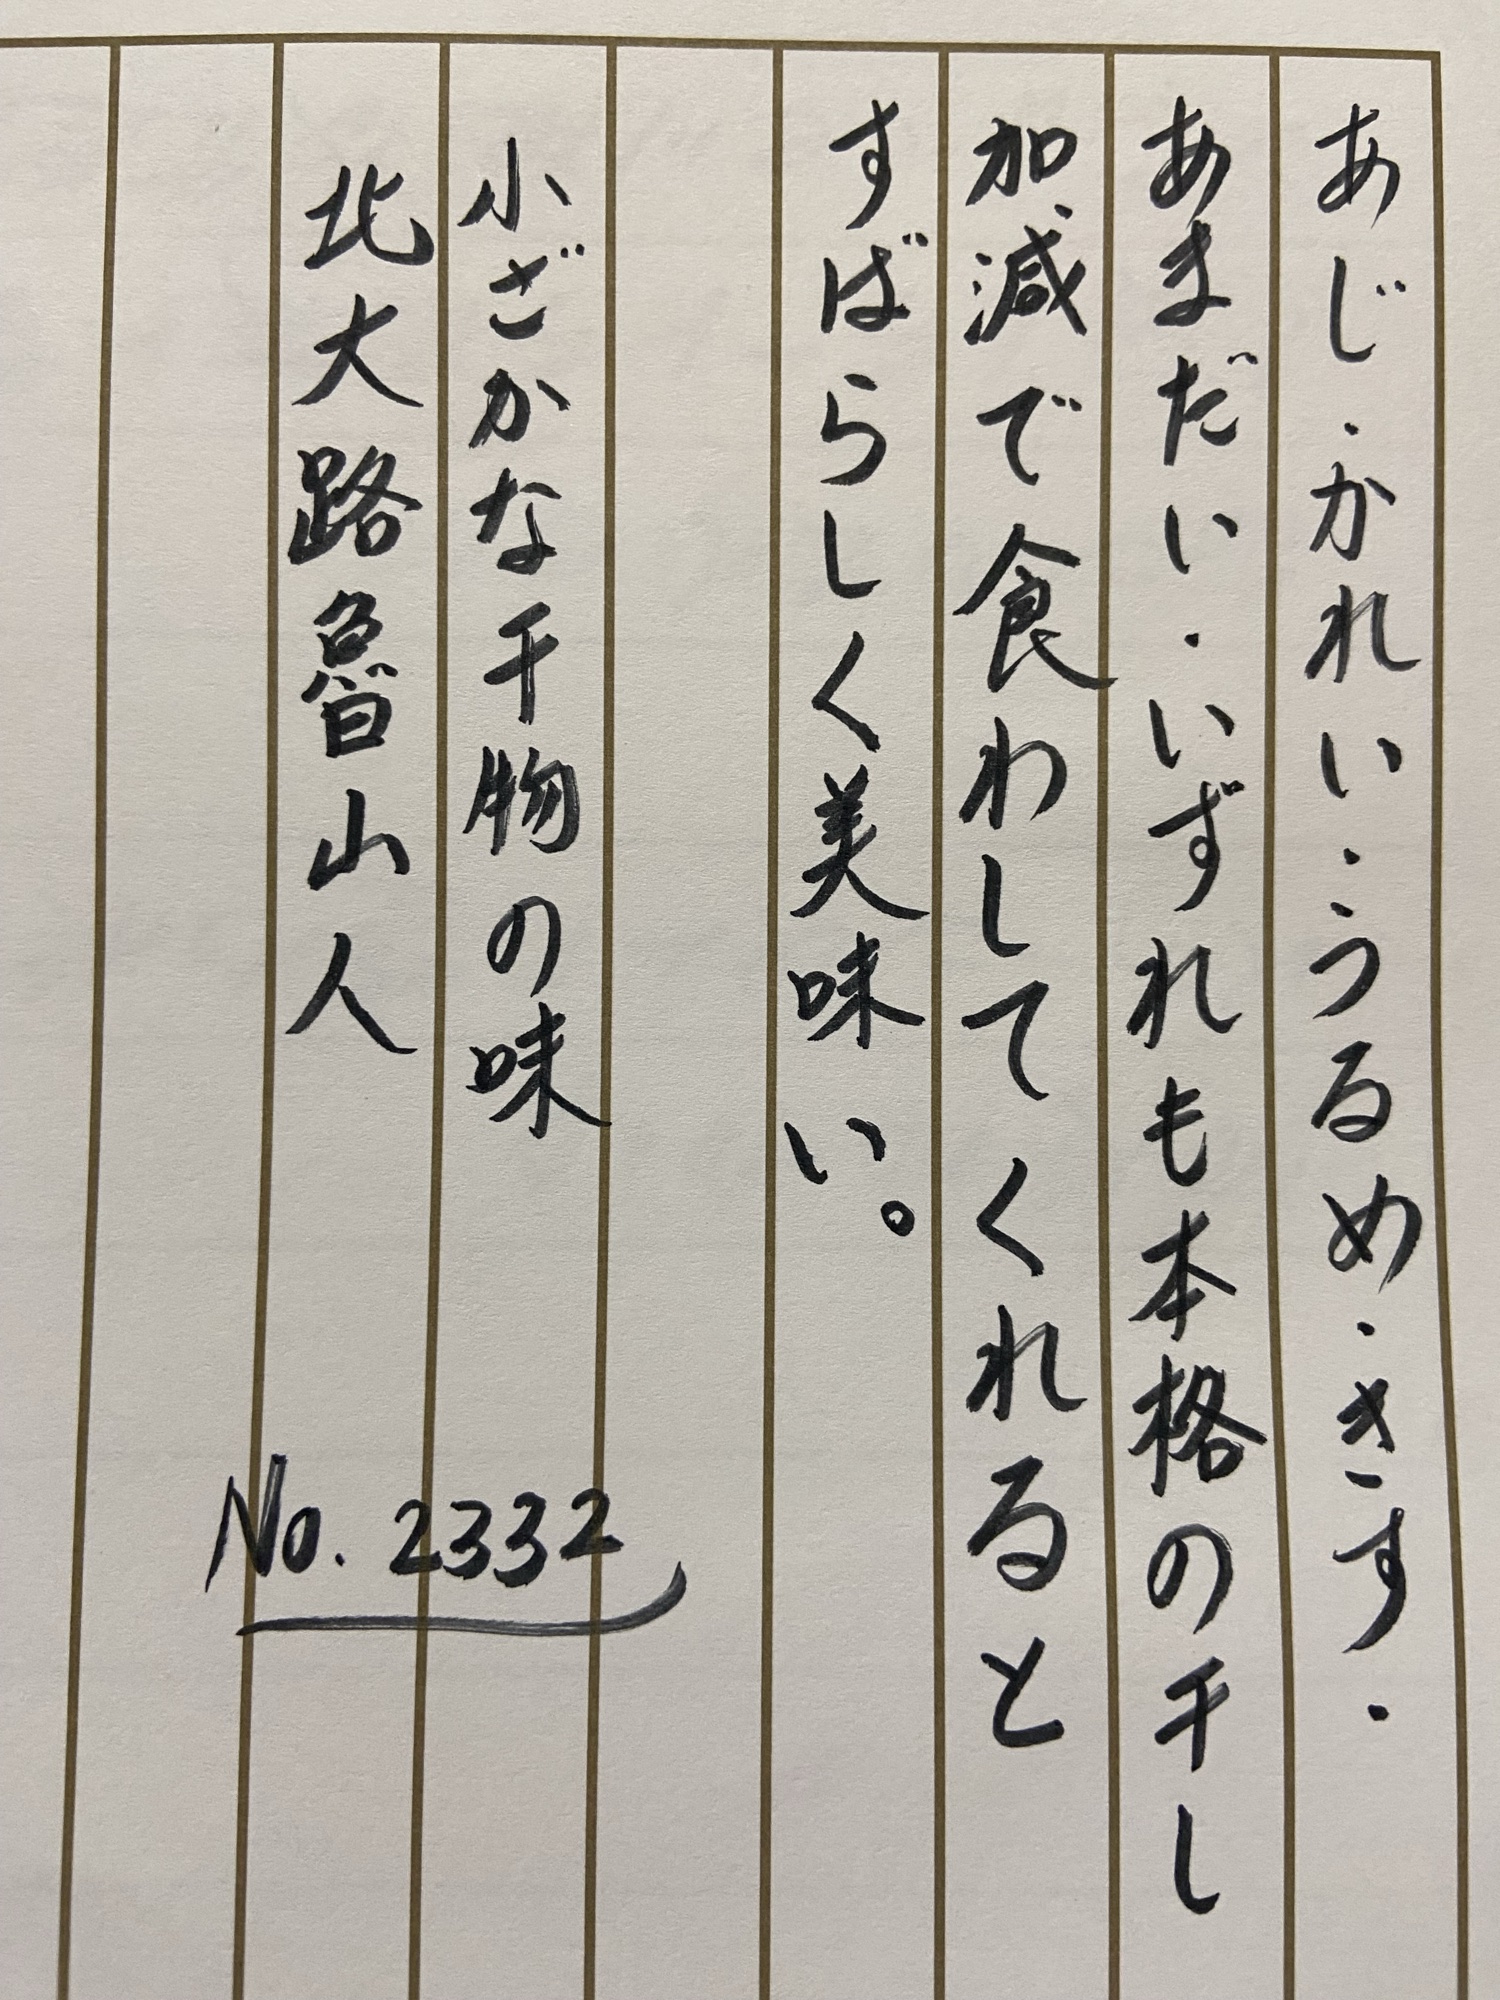 あじ・かれい・うるめ・きす・
あまだい・いずれも本格の干し
加減で食わしてくれると
すばらしく美味い。
小ざかな干物の味
北大路魯山人
No. 2332